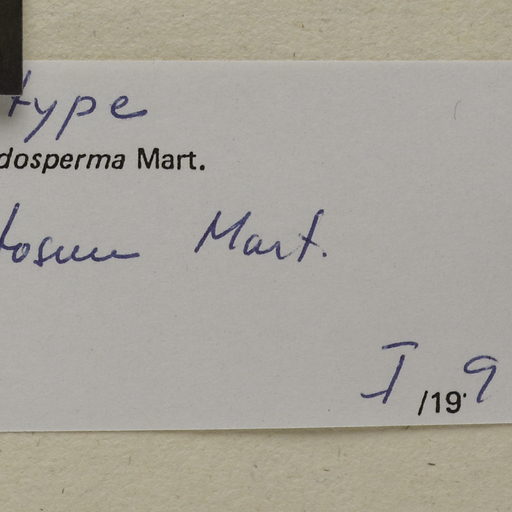 type
dosperma Mart.
tosum Mart.
I /19 9